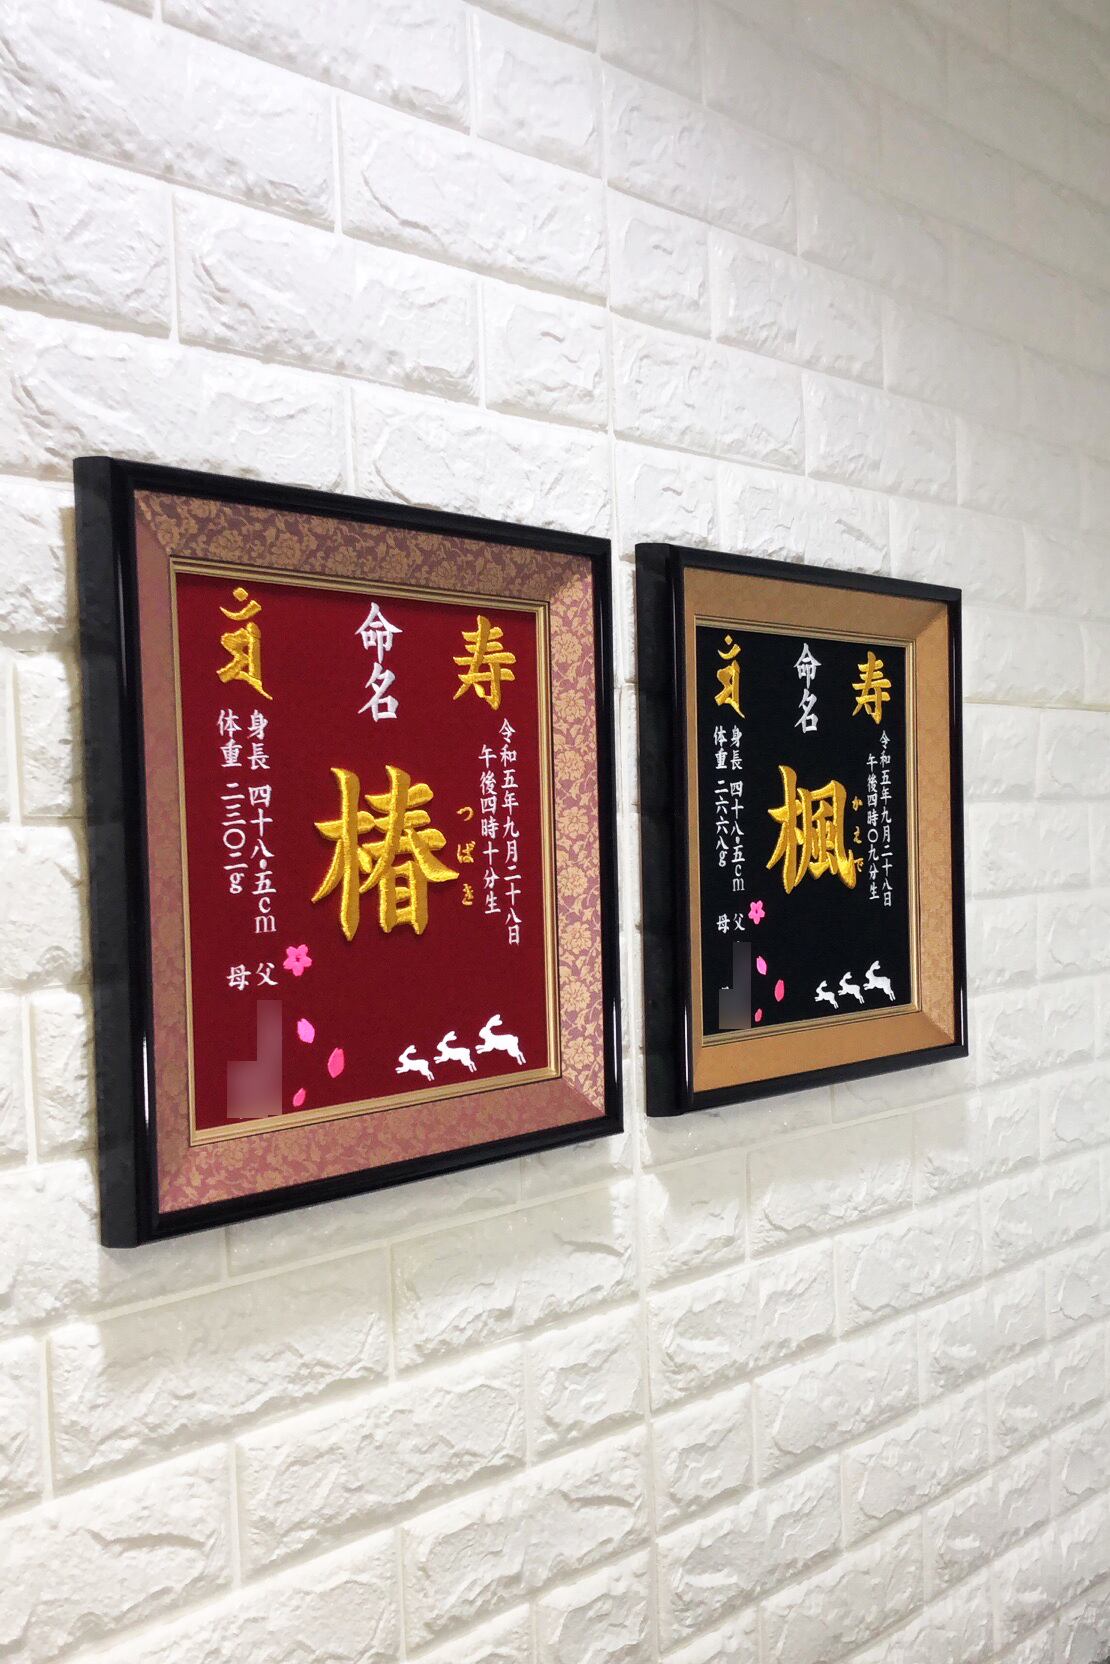 寿
令和五年九月二十八日
午後四時十分生
命名
椿
つばき
身長 四十八・五cm
体重 二三〇二g
父
母
寿
令和五年九月二十八日
午後四時〇九分生
命名
楓
かえで
身長 四十八・五cm
体重 二六六八g
父
母